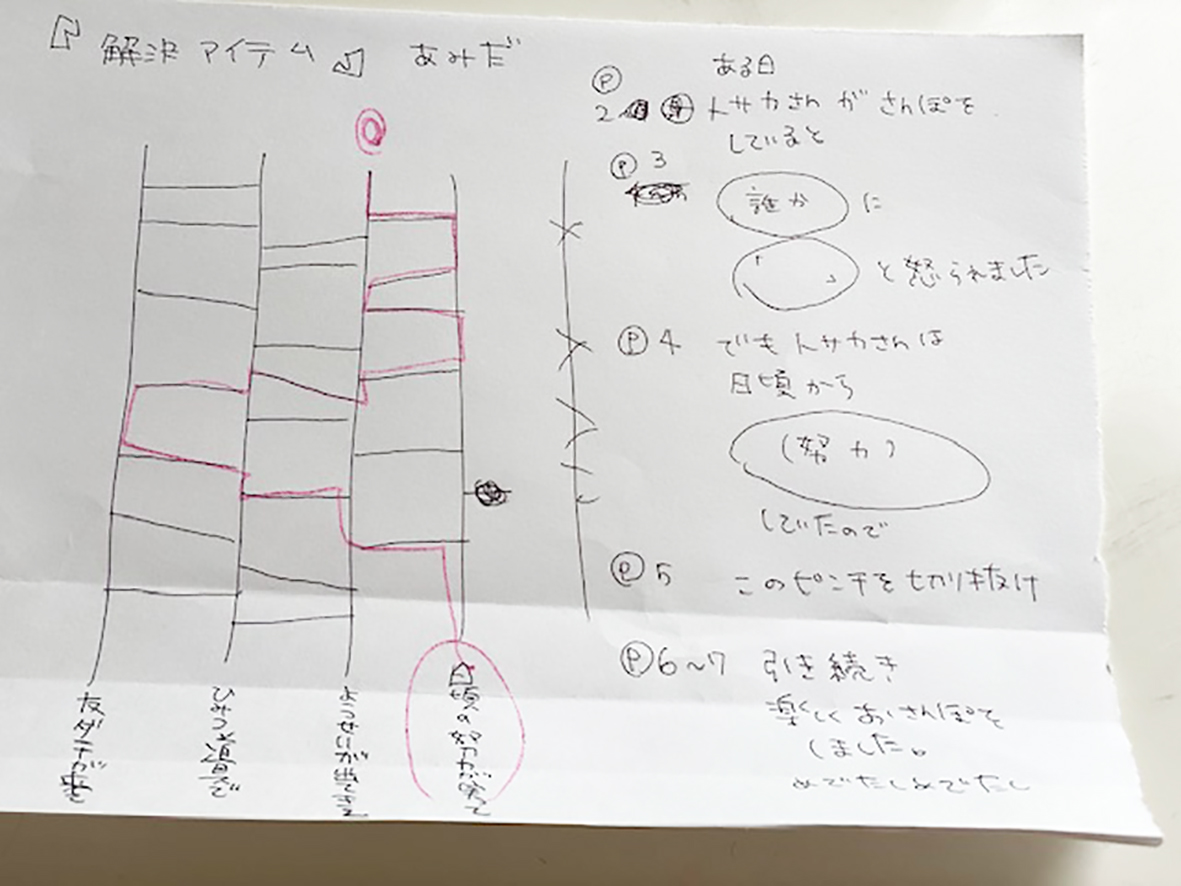 『解決アイテム』 あみだ
友ダチが来て
ひみつ道具で
ようせいが出てきて
日頃の努力が実って
ある日
Ⓟ2 トサカさんが さんぽを
していると
Ⓟ3
誰か に
「 」 と怒られました
Ⓟ4 でもトサカさんは
日頃から
(努力)
していたので
Ⓟ5 このピンチを切り抜け
Ⓟ6~7 引き続き
楽しくおさんぽを
しました。
めでたしめでたし